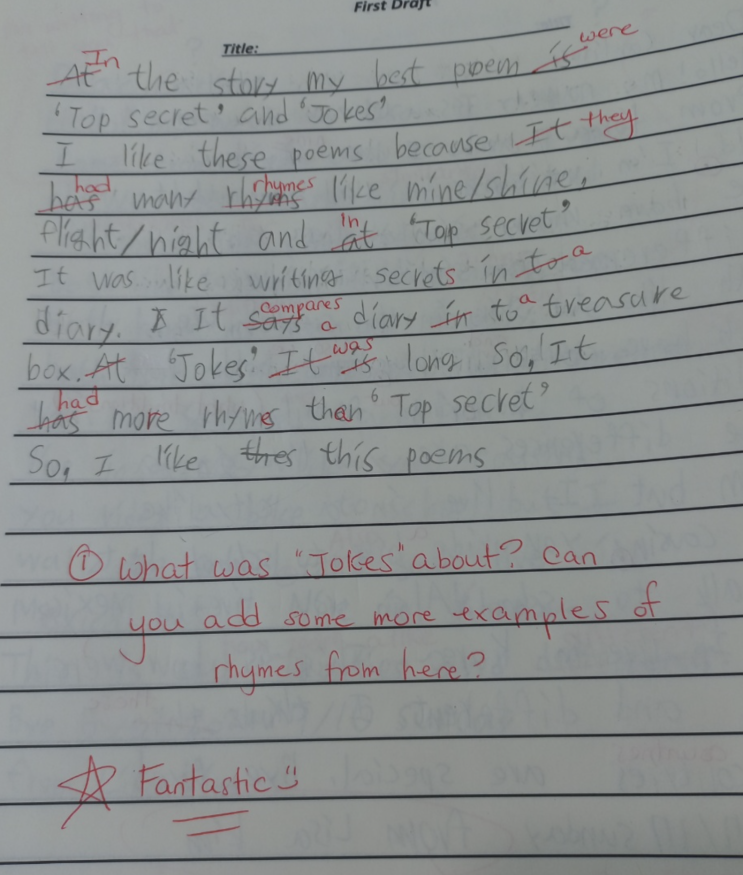 First Draft
Title:
In were
At the story my best poem is
'Top secret' and 'Jokes'
I like these poems because It they
had rhymes
has many rhyms like mine/shine,
in
flight/night and at 'Top secret'
It was like writing secrets in to a a
compares
diary. I It says a diary in to a treasure
was
box. At 'Jokes' It is long so, It
had
has more rhymes then 'Top secret'
So, I like thes this poems
① What was "Jokes" about? Can
you add some more examples of
rhymes from here?
Fantastic